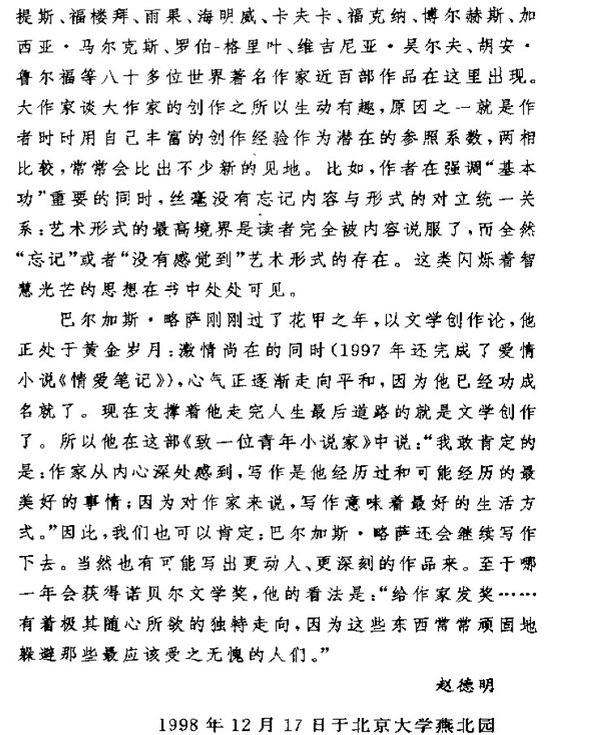 提斯、福楼拜、雨果、海明威、卡夫卡、福克纳、博尔赫斯、加
西亚·马尔克斯、罗伯-格里叶、维吉尼亚·吴尔夫、胡安·
鲁尔福等八十多位世界著名作家近百部作品在这里出现。
大作家谈大作家的创作之所以生动有趣，原因之一就是作
者时时用自己丰富的创作经验作为潜在的参照系数，两相
比较，常常会比出不少新的见地。比如，作者在强调“基本
功”重要的同时，丝毫没有忘记内容与形式的对立统一关
系：艺术形式的最高境界是读者完全被内容说服了，而全然
“忘记”或者“没有感觉到”艺术形式的存在。这类闪烁着智
慧光芒的思想在书中处处可见。
巴尔加斯·略萨刚刚过了花甲之年，以文学创作论，他
正处于黄金岁月：激情尚在的同时（1997年还完成了爱情
小说《情爱笔记》），心气正逐渐走向平和，因为他已经功成
名就了。现在支撑着他走完人生最后道路的就是文学创作
了。所以他在这部《致一位青年小说家》中说：“我敢肯定的
是：作家从内心深处感到，写作是他经历过和可能经历的最
美好的事情；因为对作家来说，写作意味着最好的生活方
式。”因此，我们也可以肯定：巴尔加斯·略萨还会继续写作
下去。当然也有可能写出更动人、更深刻的作品来。至于哪
一年会获得诺贝尔文学奖，他的看法是：“给作家发奖……
有着极其随心所欲的独特走向，因为这些东西常常顽固地
躲避那些最应该受之无愧的人们。”
赵德明
1998年12月17日于北京大学燕北园